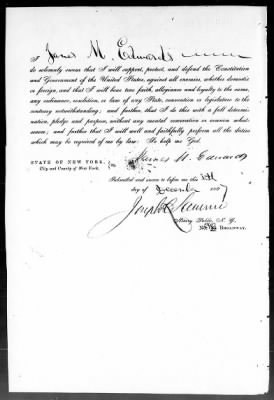 I James M. Edwards
do solemnly swear that I will support, protect, and defend the Constitution
and Government of the United States, against all enemies, whether domestic
or foreign, and that I will bear true faith, allegiance and loyalty to the same,
any ordinance, resolution or law of any State, convention or legislature to the
contrary notwithstanding; and further, that I do this with a full determi-
nation, pledge and purpose, without any mental reservation or evasion what-
soever; and further that I will well and faithfully perform all the duties
which may be required of me by law: So help me God.
James M. Edwards
STATE OF NEW YORK,
City and County of New York.
Subscribed and sworn to before me this
day of December 186
Joseph
Notary Public, N. Y.
No. BROADWAY.